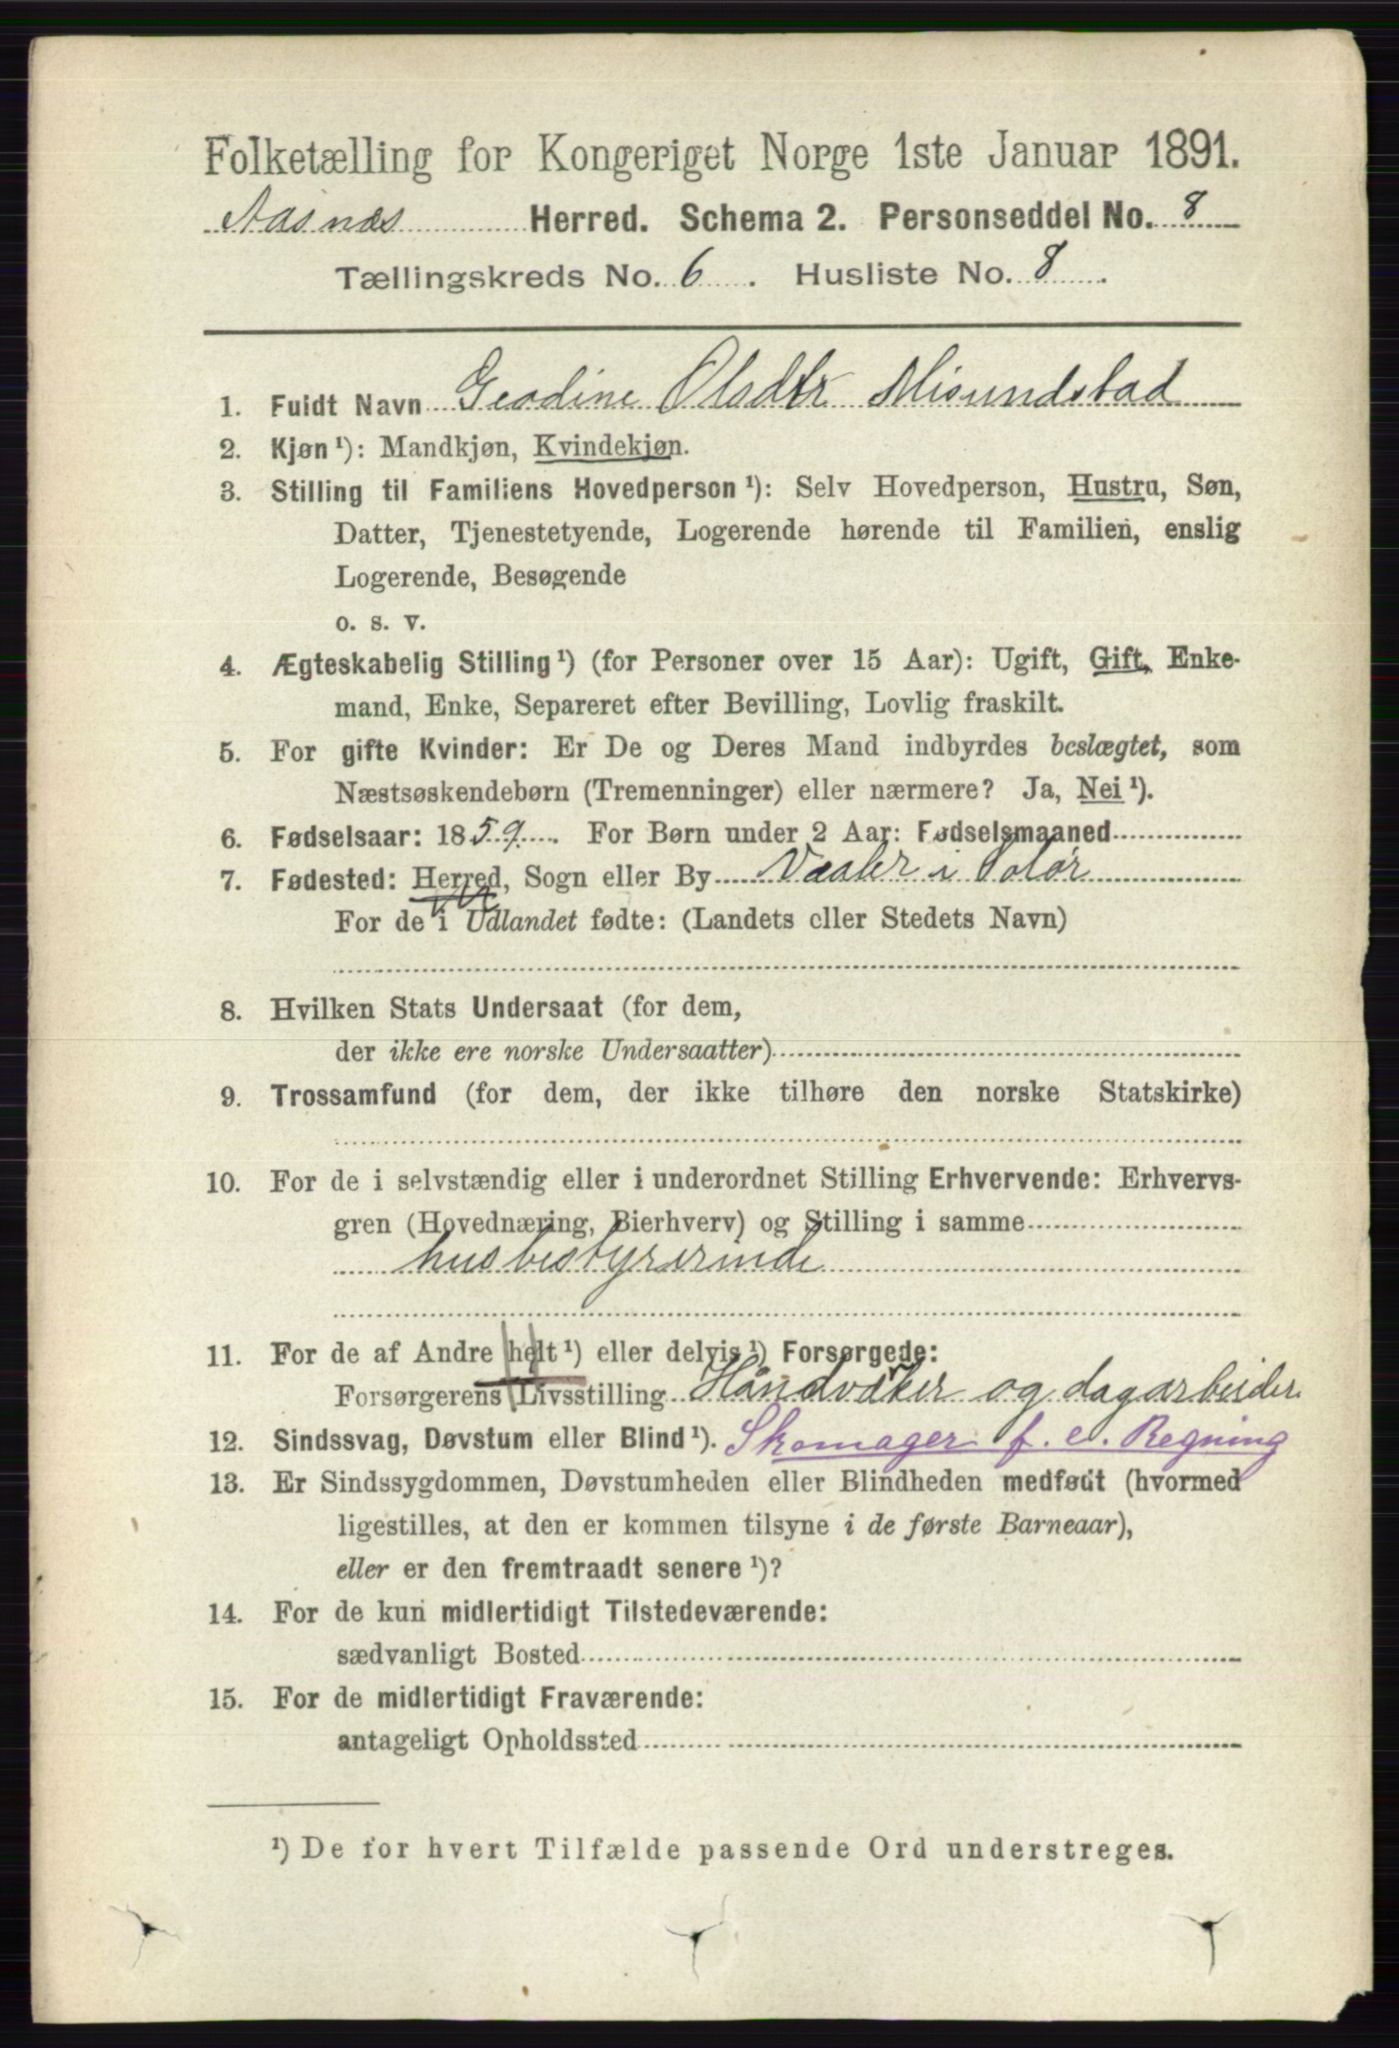 Folketælling for Kongeriget Norge 1ste Januar 1891.
Aasnæs Herred. Schema 2. Personseddel No. 8
Tællingskreds No. 6. Husliste No. 8.
1. Fuldt Navn Geodine Olsdtr Misundstad
2. Kjøn¹): Mandkjøn, Kvindekjøn.
3. Stilling til Familiens Hovedperson¹): Selv Hovedperson, Hustru, Søn,
Datter, Tjenestetyende, Logerende hørende til Familien, enslig
Logerende, Besøgende
o. s. v.
4. Ægteskabelig Stilling¹) (for Personer over 15 Aar): Ugift, Gift, Enke-
mand, Enke, Separeret efter Bevilling, Lovlig fraskilt.
5. For gifte Kvinder: Er De og Deres Mand indbyrdes beslægtet, som
Næstsøskendebørn (Tremenninger) eller nærmere? Ja, Nei¹).
6. Fødselsaar: 1859. For Børn under 2 Aar: Fødselsmaaned
7. Fødested: Herred, Sogn eller By Vaaler i Solør
For de i Udlandet fødte: (Landets eller Stedets Navn)
8. Hvilken Stats Undersaat (for dem,
der ikke ere norske Undersaatter)
9. Trossamfund (for dem, der ikke tilhøre den norske Statskirke)
10. For de i selvstændig eller i underordnet Stilling Erhvervende: Erhvervs-
gren (Hovednæring, Bierhverv) og Stilling i samme
husbestyrerinde
11. For de af Andre helt¹) eller delvis¹) Forsørgede:
Forsørgerens Livsstilling Håndværker og dagarbeider
12. Sindssvag, Døvstum eller Blind¹). Skomager f. e. Regning
13. Er Sindssygdommen, Døvstumheden eller Blindheden medfødt (hvormed
ligestilles, at den er kommen tilsyne i de første Barneaar),
eller er den fremtraadt senere¹)?
14. For de kun midlertidigt Tilstedeværende:
sædvanligt Bosted
15. For de midlertidigt Fraværende:
antageligt Opholdssted
¹) De for hvert Tilfælde passende Ord understreges.